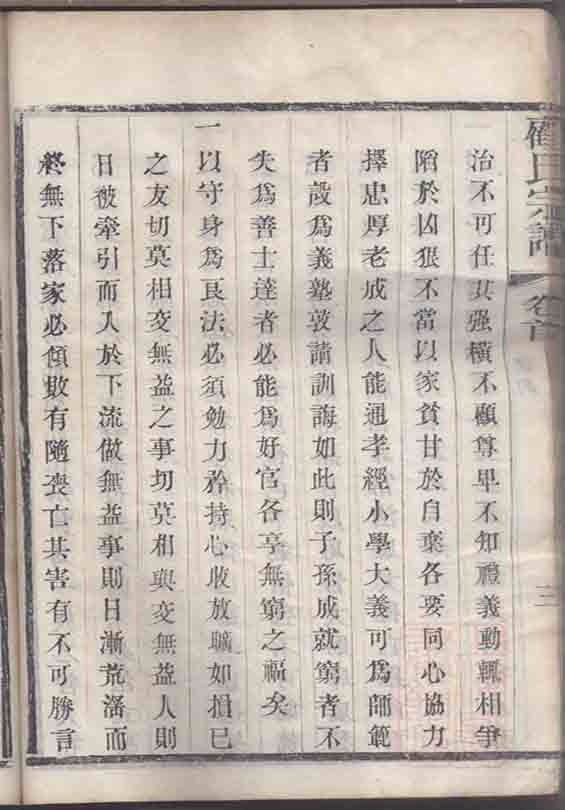 崔氏宗譜 卷首 三
治不可任其强橫不顧尊卑不知禮義動輒相爭
陷於凶狠不當以家貧甘於自棄各要同心協力
擇忠厚老成之人能通孝經小學大義可爲師範
者設爲義塾敦請訓誨如此則子孫成就窮者不
失爲善士達者必能爲好官各享無窮之福矣
一以守身爲良法必須勉力矜持心收放曠如損已
之友切莫相交無益之事切莫相與交無益人則
日彼牽引而入於下流做無益事則日漸荒滛而
終無下落家必傾敗有隨喪亡其害有不可勝言